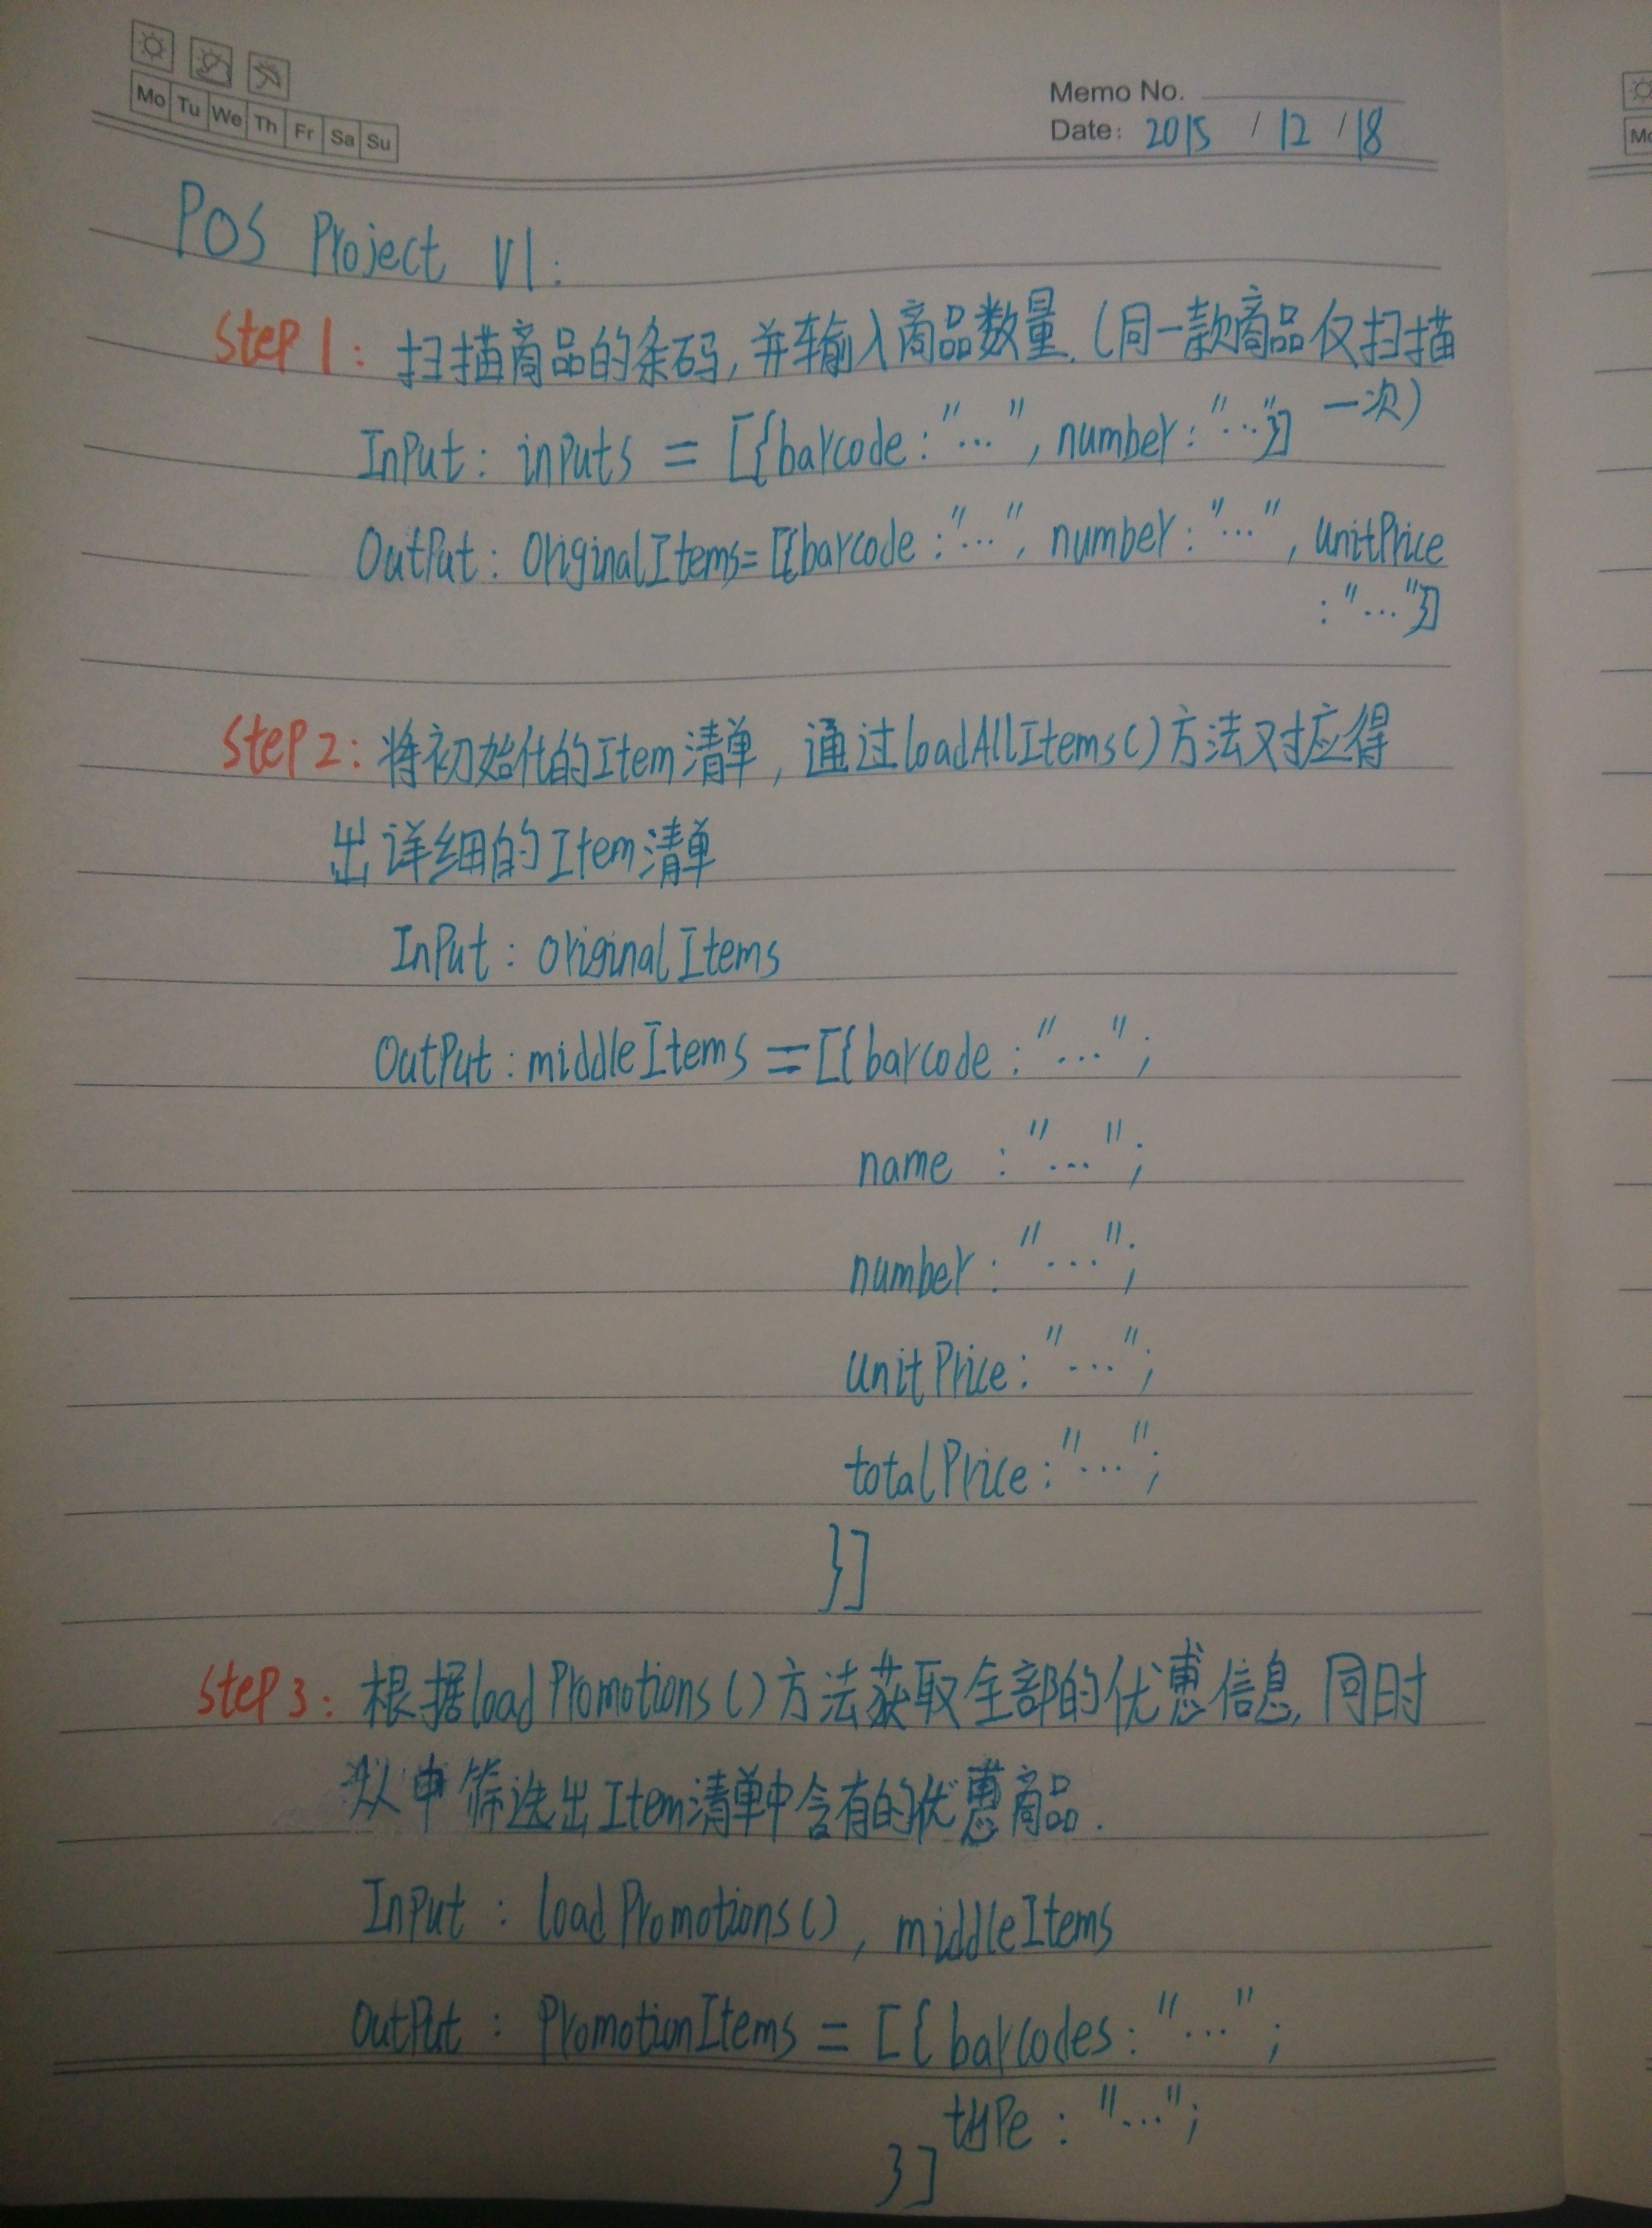 Mo Tu We Th Fr Sa Su
Memo No.
Date: 2015 / 12 / 18
POS Project V1:
Step 1: 扫描商品的条码,并输入商品数量.(同一款商品仅扫描
一次)
InPut: inputs = [{barcode:"...", number:"..."}]
OutPut: OriginalItems=[{barcode:"...", number:"...", unitPrice
:"..."}]
Step 2: 将初始化的Item清单,通过loadAllItems()方法对应得
出详细的Item清单
InPut: OriginalItems
OutPut: middleItems = [{barcode:"...";
name :"...";
number:"...";
unitPrice:"...";
totalPrice:"...";
}]
Step 3: 根据loadPromotions()方法获取全部的优惠信息,同时
从中筛选出Item清单中含有的优惠商品.
InPut: loadPromotions(), middleItems
OutPut: PromotionItems = [{barcodes:"...";
type:"...";
}]